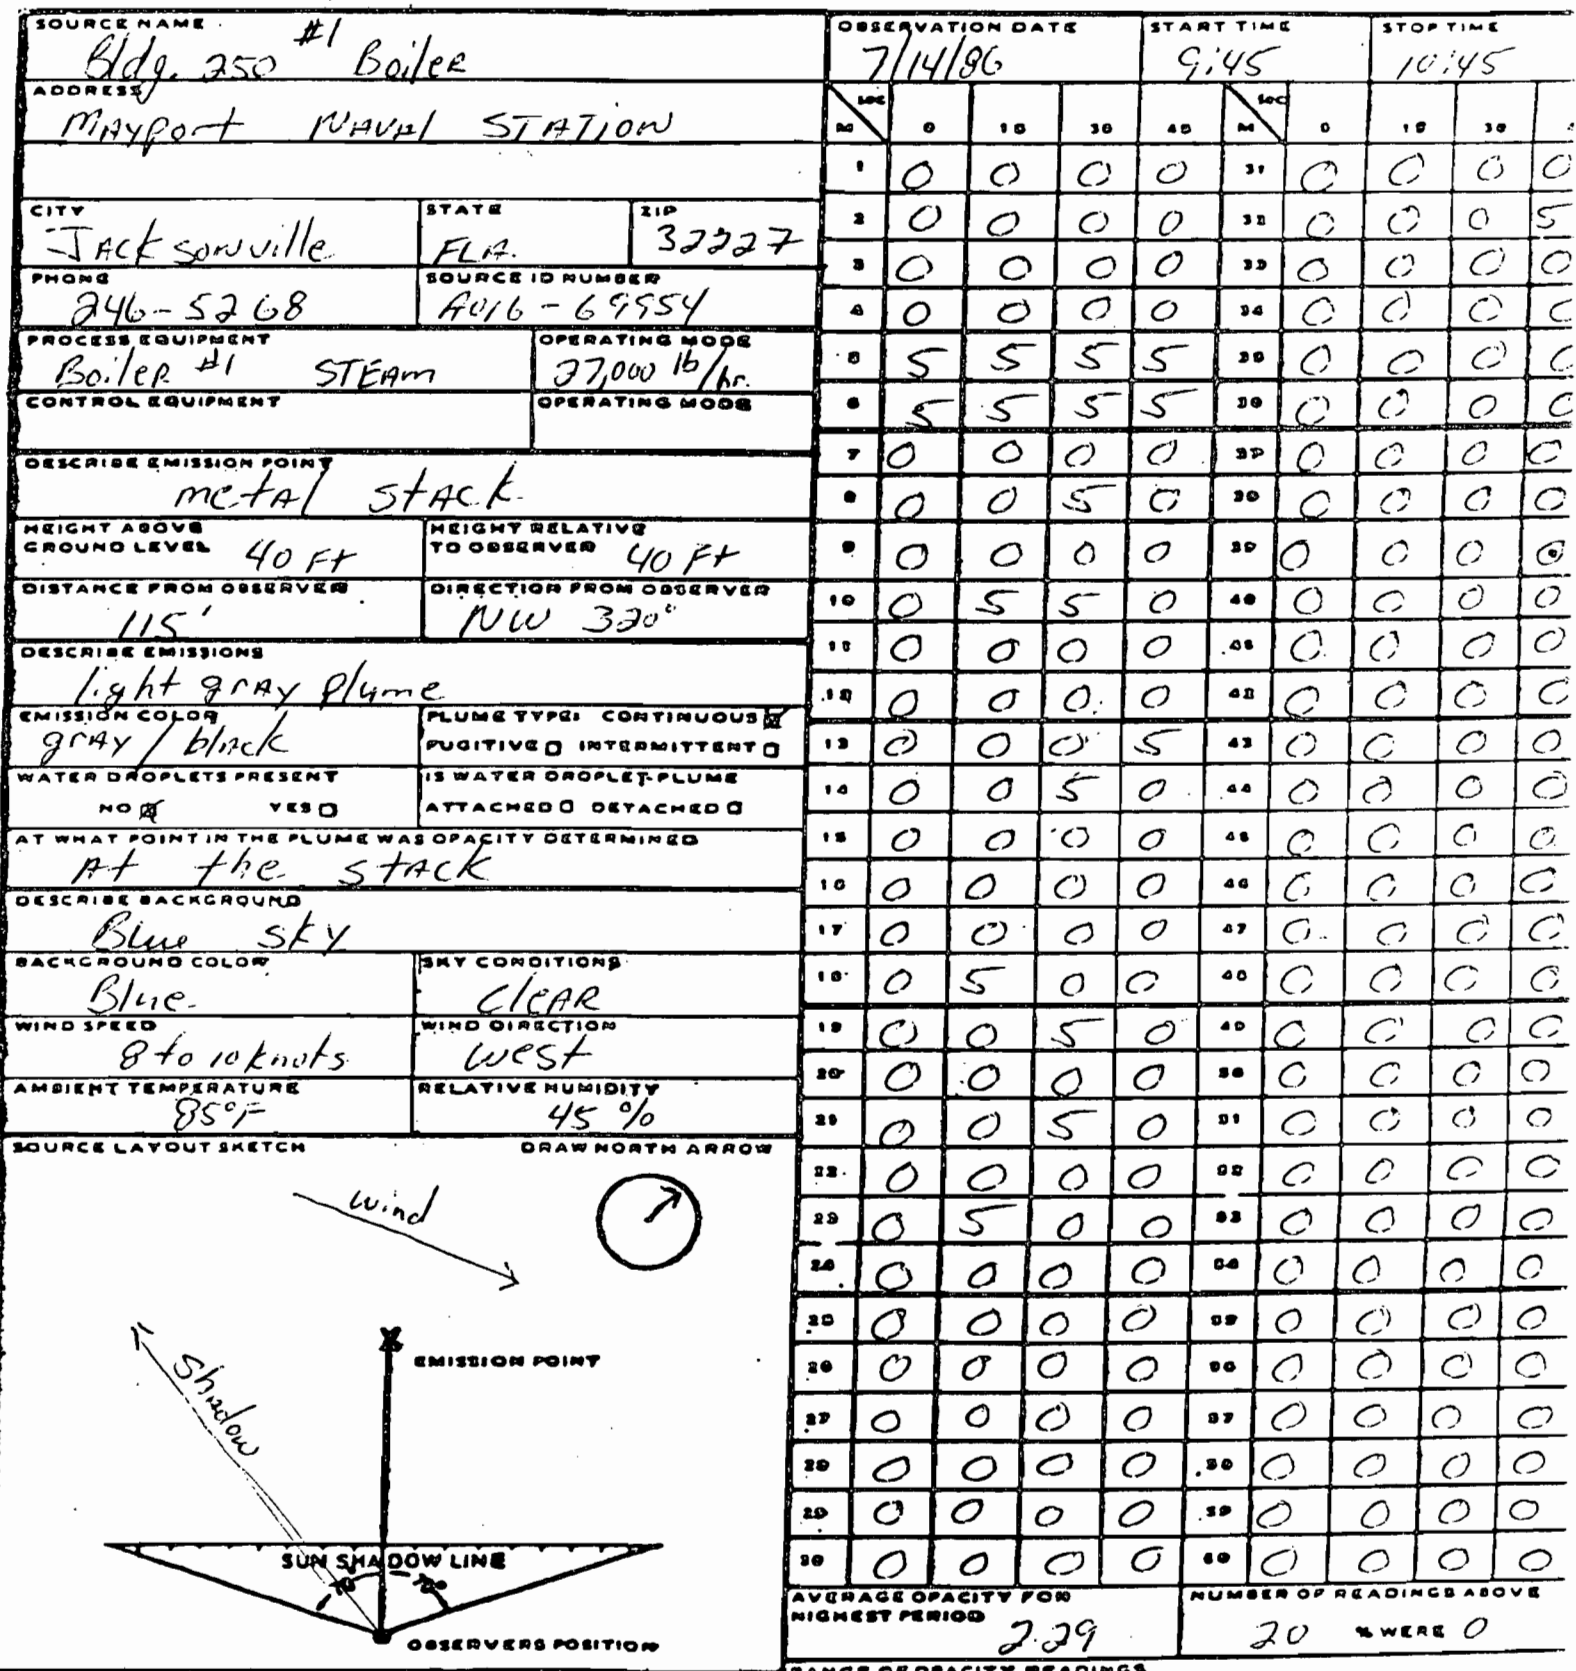 SOURCE NAME
Bldg. 250 #1 Boiler
ADDRESS
Mayport Naval Station
CITY STATE ZIP
Jacksonville FLA. 32227
PHONE SOURCE ID NUMBER
246-5268 A016-69954
PROCESS EQUIPMENT OPERATING MODE
Boiler #1 STEAM 27,000 lb/hr.
CONTROL EQUIPMENT OPERATING MODE
DESCRIBE EMISSION POINT
metal stack
HEIGHT ABOVE GROUND LEVEL 40 Ft HEIGHT RELATIVE TO OBSERVER 40 Ft
DISTANCE FROM OBSERVER DIRECTION FROM OBSERVER
115' NW 320°
DESCRIBE EMISSIONS
light gray plume
EMISSION COLOR PLUME TYPE: CONTINUOUS
gray / black FUGITIVE INTERMITTENT
WATER DROPLETS PRESENT IS WATER DROPLET PLUME
NO YES ATTACHED DETACHED
AT WHAT POINT IN THE PLUME WAS OPACITY DETERMINED
At the stack
DESCRIBE BACKGROUND
Blue sky
BACKGROUND COLOR SKY CONDITIONS
Blue Clear
WIND SPEED WIND DIRECTION
8 to 10 knots West
AMBIENT TEMPERATURE RELATIVE HUMIDITY
85°F 45 %
SOURCE LAYOUT SKETCH DRAW NORTH ARROW
wind
Shadow
EMISSION POINT
SUN SHADOW LINE
OBSERVERS POSITION
OBSERVATION DATE START TIME STOP TIME
7/14/86 9:45 10:45
M Sec 0 15 30 45 M Sec 0 15 30
1 0 0 0 0 31 0 0 0 0
2 0 0 0 0 32 0 0 0 5
3 0 0 0 0 33 0 0 0 0
4 0 0 0 0 34 0 0 0 0
5 5 5 5 5 35 0 0 0 0
6 5 5 5 5 36 0 0 0 0
7 0 0 0 0 37 0 0 0 0
8 0 0 5 0 38 0 0 0 0
9 0 0 0 0 39 0 0 0 0
10 0 5 5 0 40 0 0 0 0
11 0 0 0 0 41 0 0 0 0
12 0 0 0 0 42 0 0 0 0
13 0 0 0 5 43 0 0 0 0
14 0 0 5 0 44 0 0 0 0
15 0 0 0 0 45 0 0 0 0
16 0 0 0 0 46 0 0 0 0
17 0 0 0 0 47 0 0 0 0
18 0 5 0 0 48 0 0 0 0
19 0 0 5 0 49 0 0 0 0
20 0 0 0 0 50 0 0 0 0
21 0 0 5 0 51 0 0 0 0
22 0 0 0 0 52 0 0 0 0
23 0 5 0 0 53 0 0 0 0
24 0 0 0 0 54 0 0 0 0
25 0 0 0 0 55 0 0 0 0
26 0 0 0 0 56 0 0 0 0
27 0 0 0 0 57 0 0 0 0
28 0 0 0 0 58 0 0 0 0
29 0 0 0 0 59 0 0 0 0
30 0 0 0 0 60 0 0 0 0
AVERAGE OPACITY FOR HIGHEST PERIOD 2.29
NUMBER OF READINGS ABOVE 20 % WERE 0
RANGE OF OPACITY READINGS